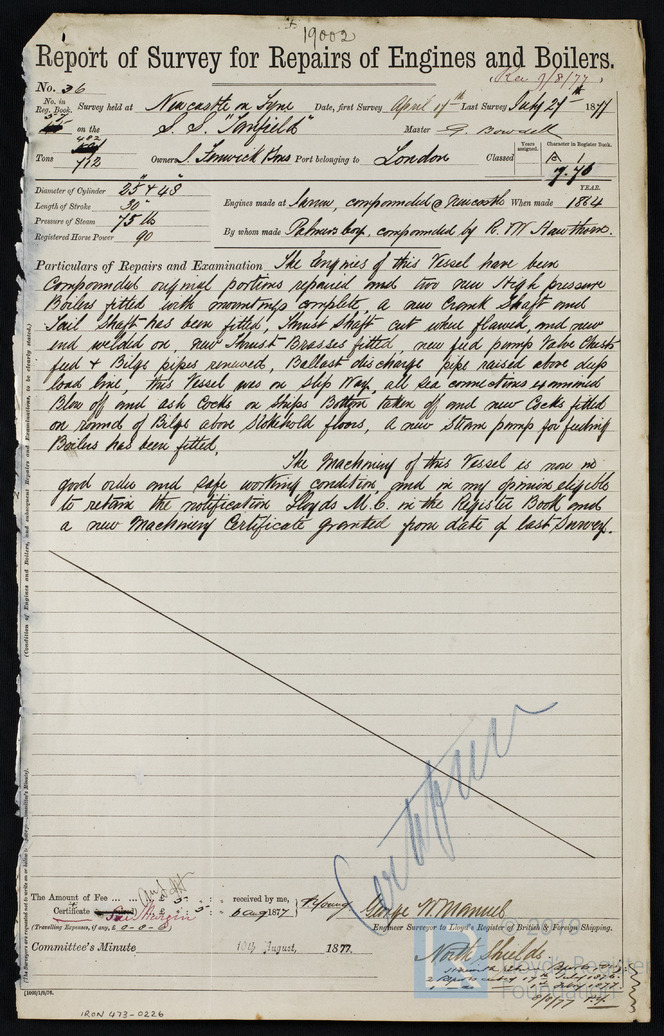 19002
Report of Survey for Repairs of Engines and Boilers.
Rec 7/8/77
No. 36
No. in Reg. Book. Survey held at Newcastle on Tyne Date, first Survey April 17th Last Survey July 27th 1877
on the S. S. "Tanfield" Master G. Bowdell
Tons 712 Owners J. Fenwick & Sons Port belonging to London Classed Years assigned. Character in Register Book. A 1
7.76
Diameter of Cylinder 25" & 48"
Length of Stroke 30"
Pressure of Steam 75 lbs
Registered Horse Power 90
Engines made at Jarrow, compounded @ Newcastle When made YEAR. 1864
By whom made Palmers Coy, compounded by R. W Hawthorn.
Particulars of Repairs and Examination The Engines of this Vessel have been
Compounded original portions repaired and two new High pressure
Boilers fitted with mountings complete, a new Crank Shaft and
Tail Shaft has been fitted, Thrust Shaft cut where flawed, and new
end welded on, new Thrust Brasses fitted new feed pump Valve Chests
feed & Bilge pipes renewed, Ballast discharge pipe raised above deep
load line, this Vessel was on Slip Way, all sea connections examined
Blow off and ash Cocks on Ships Bottom taken off and new Cocks fitted
on round of Bilge above Stokehold floors, a new Steam pump for feeding
Boilers has been fitted.
The Machinery of this Vessel is now in
good order and safe working condition, and in my opinion eligible
to retain the notification Lloyds M.C. in the Register Book and
a new Machinery Certificate granted from date of last Survey.
(Condition of Engines and Boilers, and subsequent Repairs and Examinations, to be clearly stated.)
Certificate
The Amount of Fee ... ... £ 3 : received by me,
Certificate £ : 5 : 6 Aug 1877
(Travelling Expenses, if any, £ 0-0-0)
George W. Manuel
Engineer Surveyor to Lloyd's Register of British & Foreign Shipping.
North Shields
Committee's Minute 10th August, 1877.
© 2019
Lloyd's Register
Foundation
IRON 473-0226